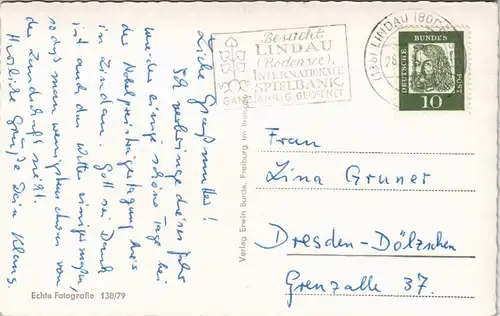 Liebe Großmutter!
Ich verbringe dieses Jahr
wieder einige schöne Tage bei
der Nobelpreisträgertagung hier
in Lindau. Gott sei Dank
ist auch das Wetter einigermaßen,
so daß man wenigstens etwas von
der Landschaft sieht.
Herzliche Grüße Dein Klaus.
Echte Fotografie 138/79
Verlag Erwin Burda, Freiburg im Breisgau
Besucht
LINDAU
(Bodensee)
INTERNATIONALE
SPIELBANK
GANZJÄHRIG GEÖFFNET
(13b) LINDAU (BOD
DEUTSCHE BUNDES POST
10
Frau
Lina Gruner
Dresden-Dölzschen
Grenzalle 37.